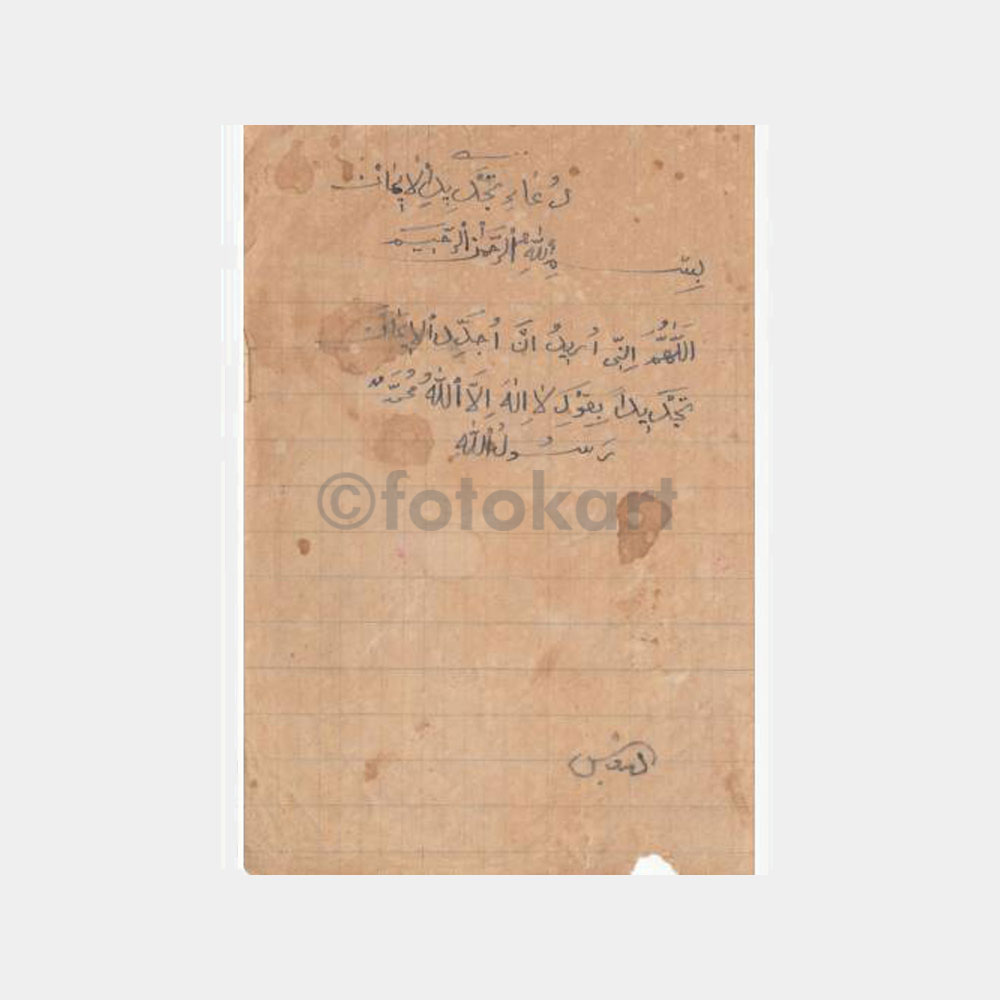 دُعَاءِ تَجْدِيدِ اْلاِيمَانْ
بِسْمِ اللهِ الرَّحْمنِ الرَّحِيمِ
اَللَّهُمَّ اِنِّى اُرِيدُ اَنْ اُجَدِّدَ اْلاِيمَانَ
تَجْدِيدًا بِقَوْلِ لاَ اِلَهَ اِلاَّ اللهُ مُحَمَّدٌ
رَسُولُ اللهِ
©fotokart